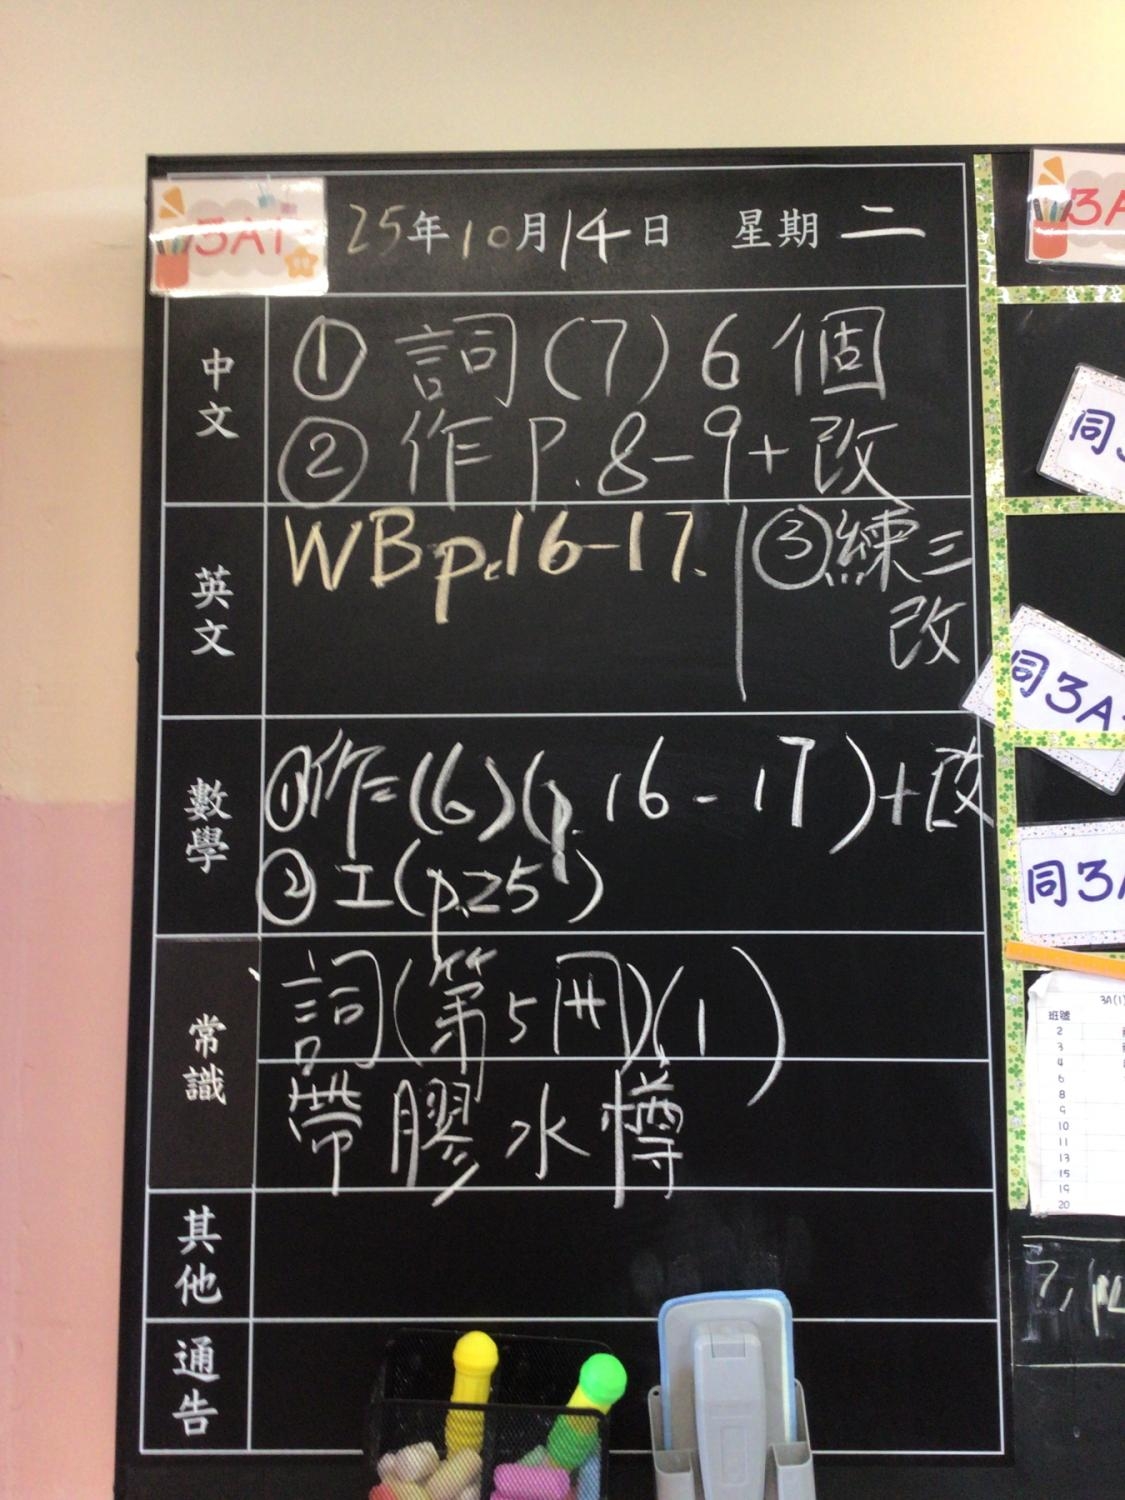 3A1 25年10月14日 星期二
中文
① 詞(7)6個
② 作P.8-9+改
英文
WB p.16-17.
③練三
改
數學
①作=(6)(p.16-17)+改
②工(p.25)
常識
詞(第5冊)(1)
帶膠水樽
其他
通告
3A
同3A
同3A
3A(1)
班號
2
3
4
6
8
9
10
11
13
15
19
20